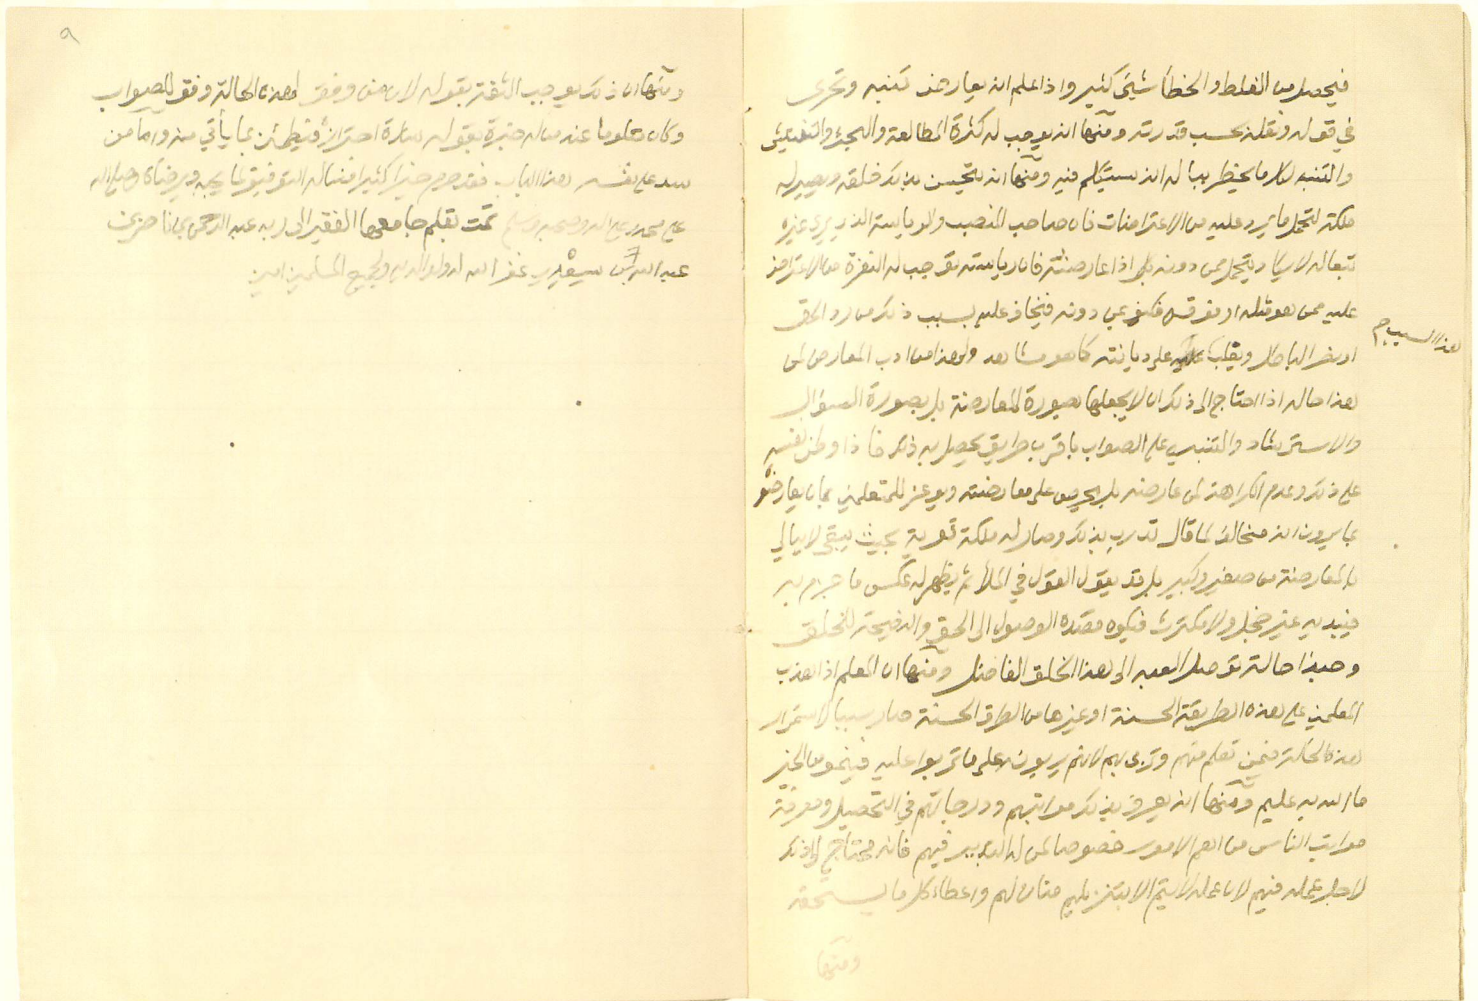 فيحصل من الغلط والخطأ شيئ كثير واذا علم انه يعارض تنبه وتحرى
في قوله ونقله بحسب قدرته ومنها انه يوجب له كثرة المطالعة والبحث والتفتيش
والتنبه لكل ما يخطر بباله انه سيتكلم فيه ومنها انه يتحسن بذلك خلقه ويصير له
ملكة لتحمل ما يرد عليه من الاعتراضات فان صاحب المنصب والرياسة الذي يرى غيره
تبعا له لا يكاد يتحمل ممن دونه بل اذا عارضته فان رياسته توجب له النفرة من الاعتراض
عليه ممن هو مثله او فوقه فكيف بمن دونه فيخاف عليه بسبب ذلك من رد الحق
او نصر الباطل ويغلب على ديانته كما هو مشاهد ولهذا من ادب المعارض لمن
هذا حاله اذا احتاج الى ذلك ان لا يجعلها بصورة المعارضة بل بصورة السؤال
والاسترشاد والتنبيه على الصواب باقرب طريق يحصل به ذلك فاذا وطن نفسه
على ذلك وعدم الكراهة لمن عارضه بل يحرص على معارضته ويوعز للمتعلمين بان يعارضوه
بما يرون انه مخالف لما قال تدرب بذلك وصار له ملكة قوية بحيث يبقى لا يبالي
بالمعارضة من صغير وكبير بل قد يقول القول في الملأ ثم يظهر له عكس ما جزم به
فيبديه غير خجل ولا مكترث فيكون قصده الوصول الى الحق والنصيحة للخلق
وحبذا حالة توصل العبد الى هذا الخلق الفاضل ومنها ان المعلم اذا هذب
المعلمين على هذه الطريقة الحسنة او غيرها من الطرق الحسنة صار سببا لاستمرار
هذه الحالة فيمن تعلم منهم وتربى بهم لانهم يربون على ما تربوا عليه فينمو من الخير
ما الله به عليم ومنها انه يعرف بذلك مراتبهم ودرجاتهم في التحصيل ومعرفة
مراتب الناس من اهم الامور خصوصا لمن له التدبير فيهم فانه محتاج الى ذلك
لاجل عمله فيهم لان عمله لا يتم الا بتنزيلهم منازلهم واعطاء كل ما يستحقه
ومنها
هذا السبب م
٩
ومنها ان ذلك يوجب الثقة بقوله لان من وفق لهذه الحالة وفق للصواب
وكان معلوما عند من له خبرة بقوله احترازه فيطمئن بما يأتي منه واما من
سد على نفسه هذا الباب فقد حرم خيرا كثيرا فنسأله التوفيق لما يحبه ويرضاه وصلى الله
على محمد وعلى آله وصحبه وسلم تمت بقلم جامعها الفقير الى ربه عبد الرحمن بن ناصر بن
عبد الله بن سعدي غفر الله له ولوالديه ولجميع المسلمين امين